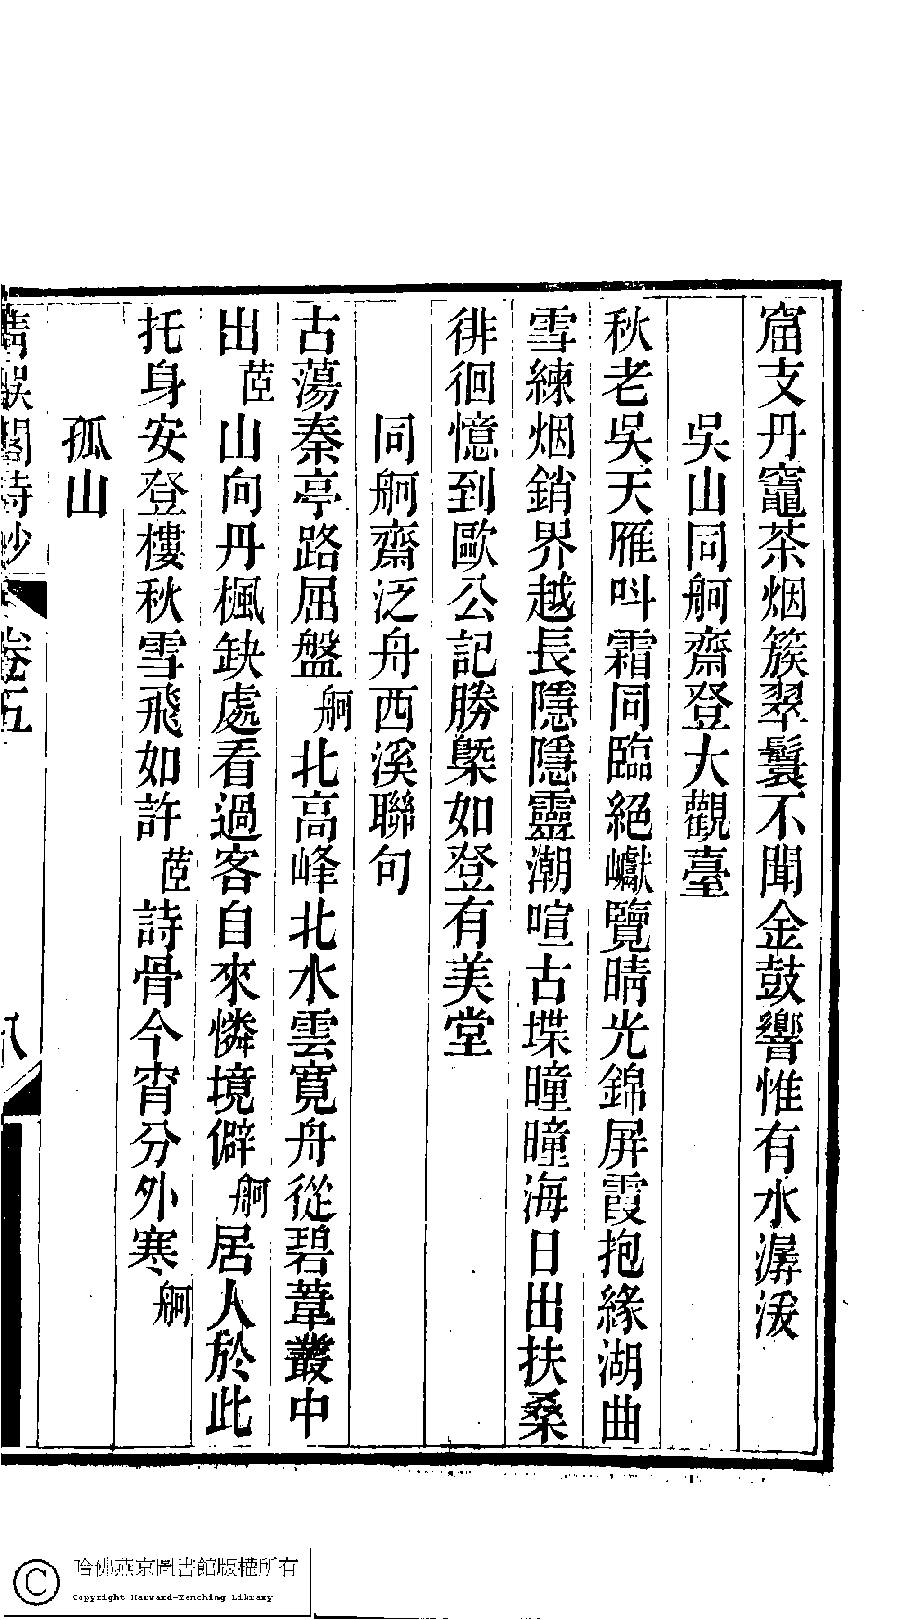 窟支丹竈茶烟簇翠鬟不聞金鼓響惟有水潺湲
吳山同舸齋登大觀臺
秋老吳天雁叫霜同臨絕巘覽晴光錦屏霞抱緣湖曲
雪練烟銷界越長隱隱靈潮喧古堞曈曈海日出扶桑
徘徊憶到歐公記勝槩如登有美堂
同舸齋泛舟西溪聯句
古蕩秦亭路屈盤舸北高峰北水雲寬舟從碧葦叢中
出茝山向丹楓缺處看過客自來憐境僻舸居人於此
托身安登樓秋雪飛如許茝詩骨今宵分外寒舸
孤山
詩鈔 卷五
八
哈佛燕京圖書館版權所有
Copyright Harvard-Yenching Library